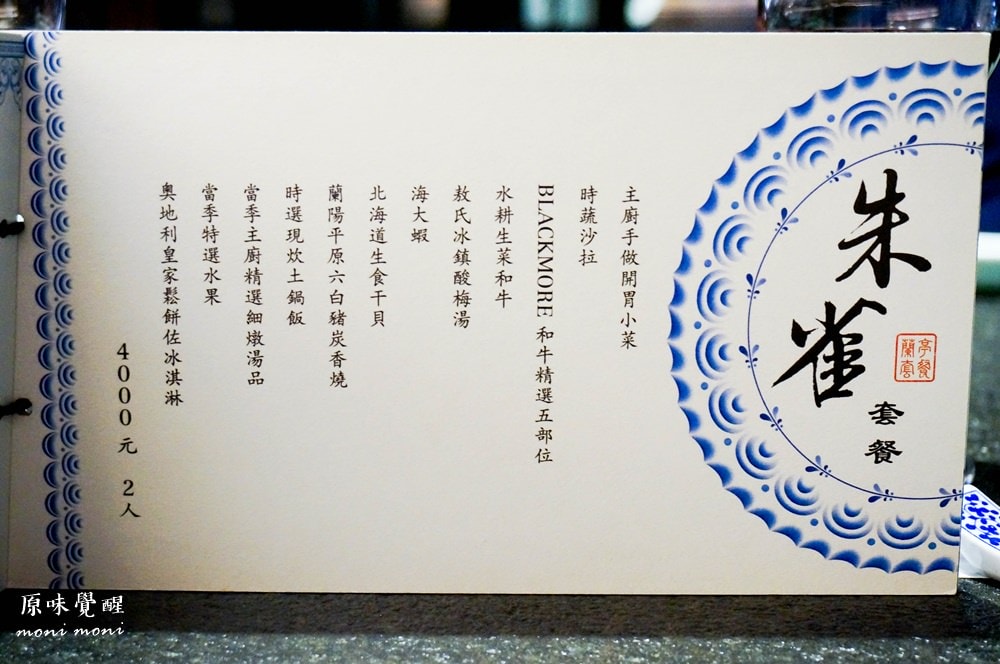 朱雀
套餐
蘭亭套餐
主廚手做開胃小菜
時蔬沙拉
BLACKMORE 和牛精選五部位
水耕生菜和牛
敖氏冰鎮酸梅湯
海大蝦
北海道生食干貝
蘭陽平原六白豬炭香燒
時選現炊土鍋飯
當季主廚精選細燉湯品
當季特選水果
奧地利皇家鬆餅佐冰淇淋
4000元 2人
原味覺醒
moni moni